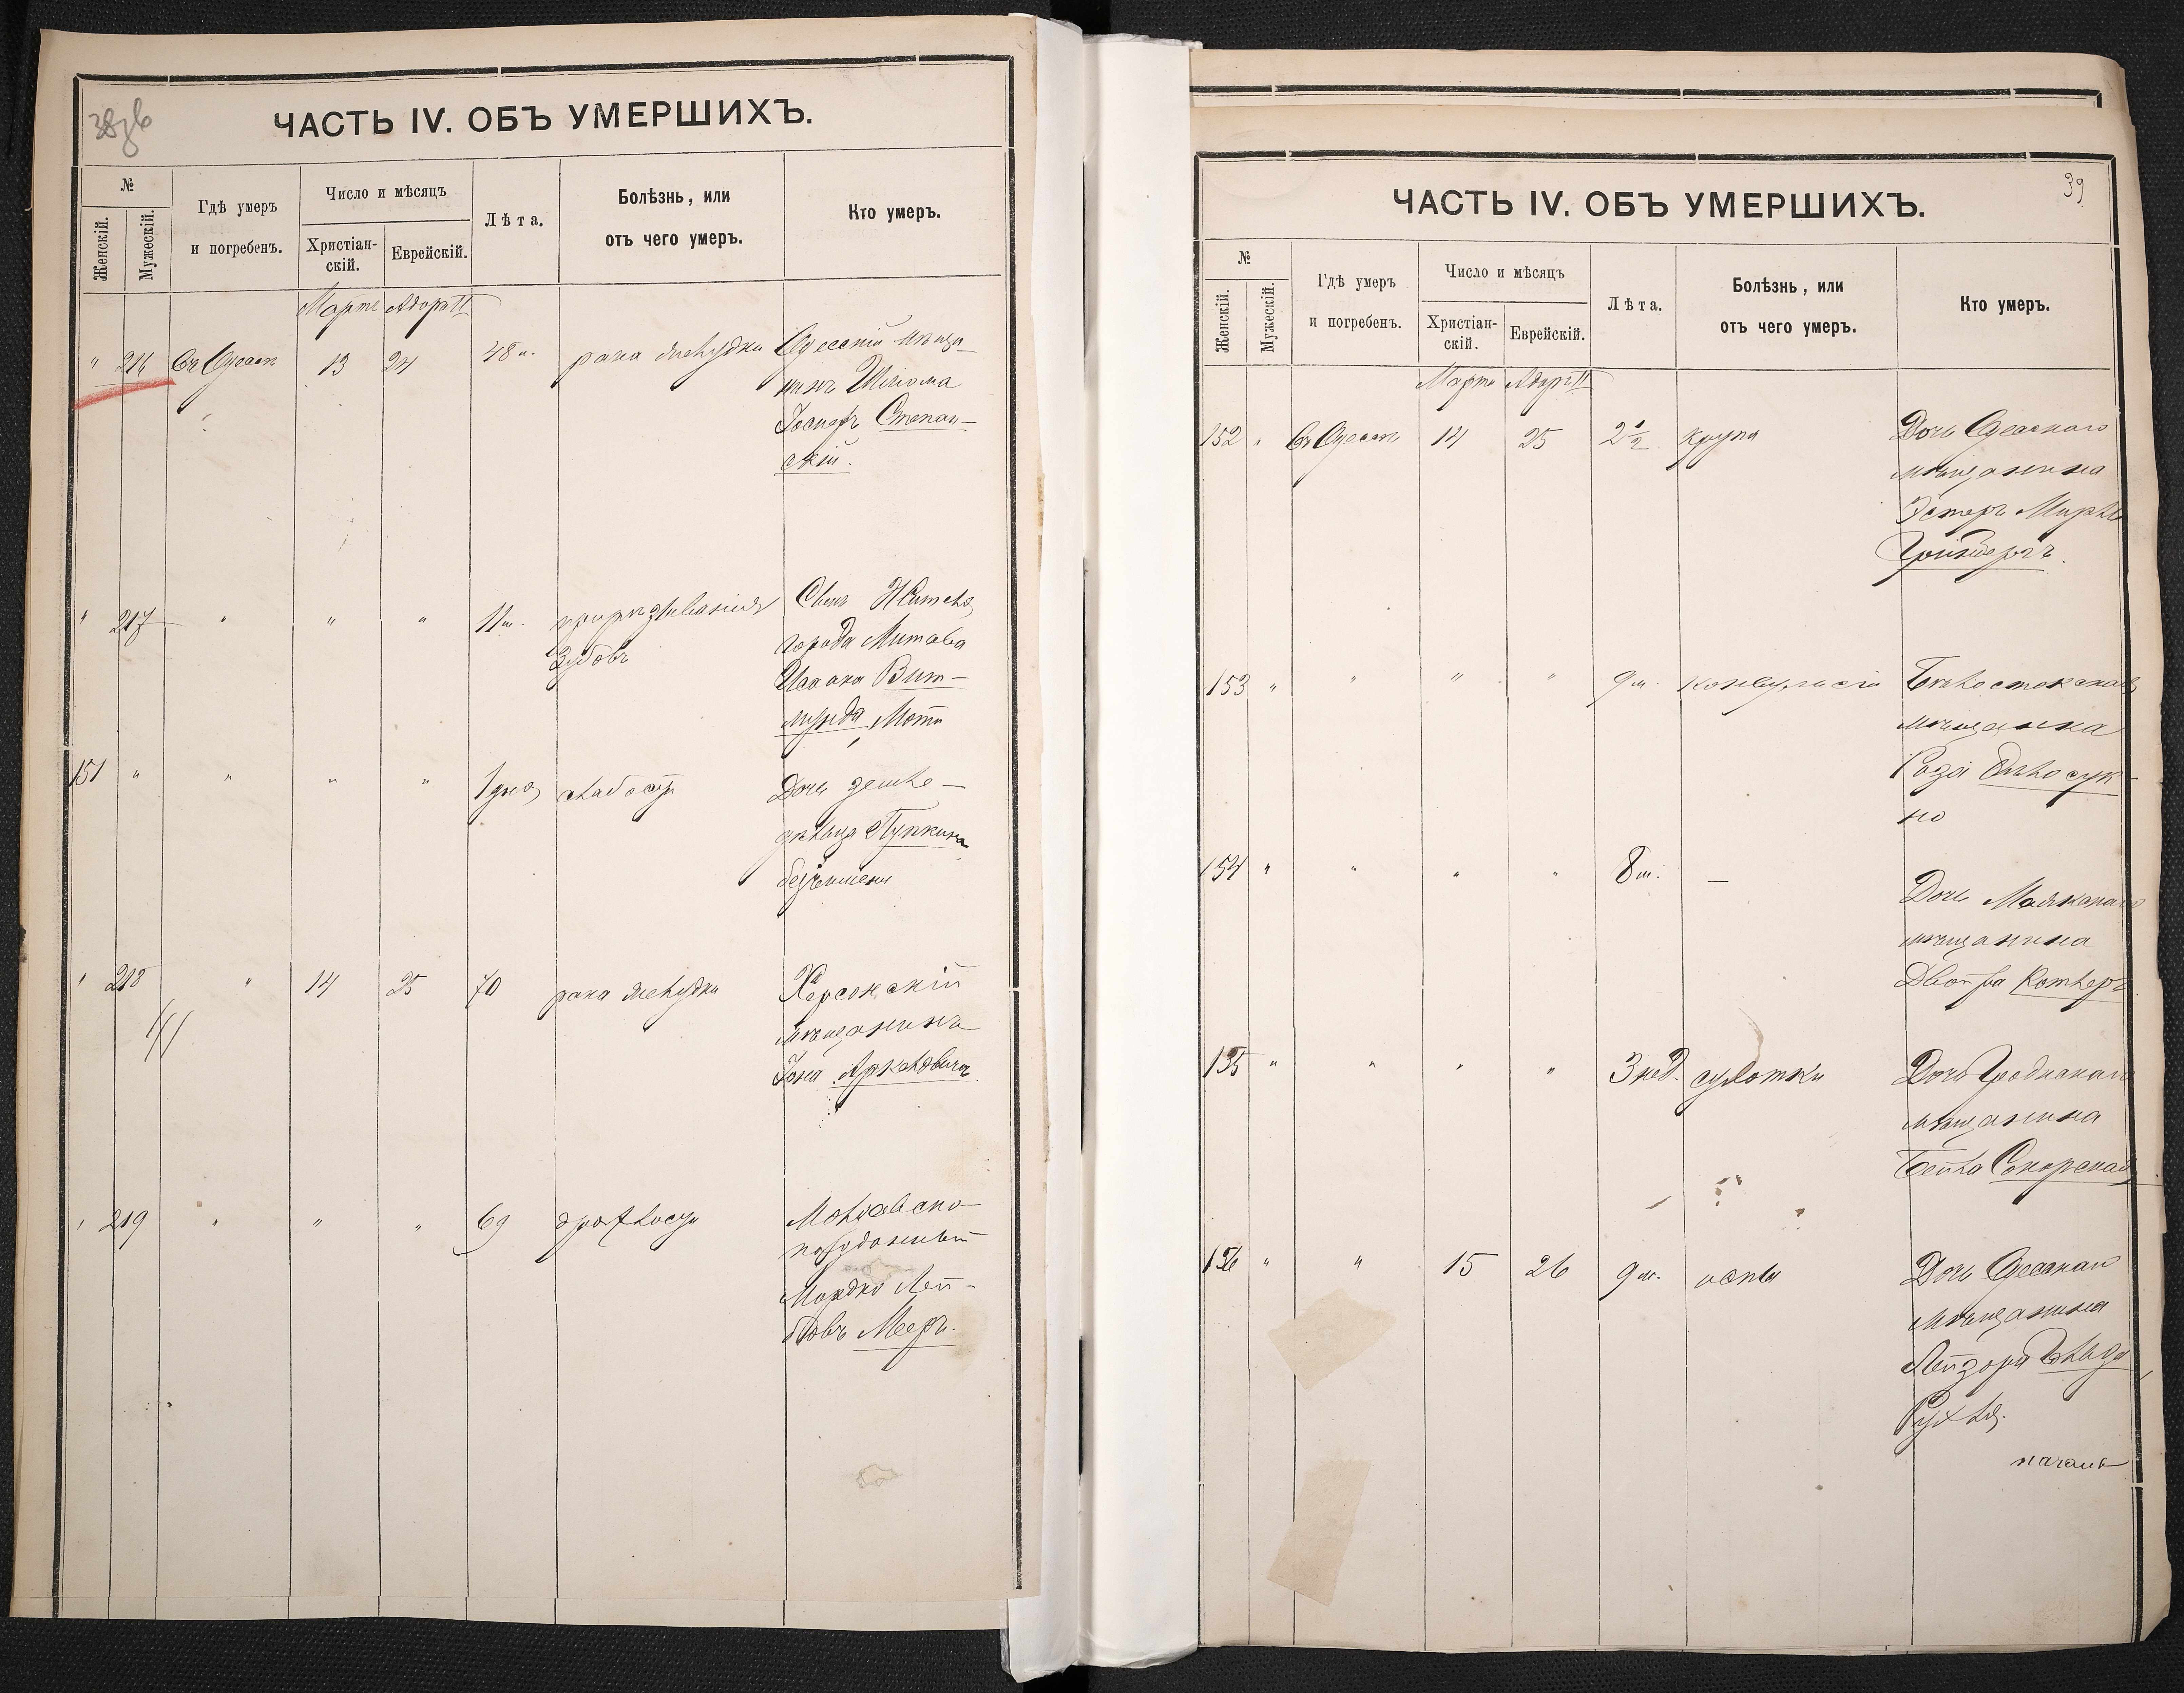 ЧАСТЬ IV. ОБЪ УМЕРШИХЪ.
№
Женскій.
Мужескій.
Гдѣ умеръ
и погребенъ.
Число и мѣсяцъ
Христіан-
скій.
Еврейскій.
Лѣта.
Болѣзнь, или
отъ чего умеръ.
Кто умеръ.
Марта Адоръ II
" 216 Въ Одессѣ 13 24 48 рака желудка Одесскій мѣща-
нинъ Шлиома
Іосифъ Степан-
скій.
" 217 " " " 11 м. прорѣзыванія Сынъ Жителя
зубовъ города Митава
Исаака Вит-
мунда Мотя
151 " " " " 1 дня слабости Дочь земле-
дѣльца Пупкина
безъ имени
" 218 " 14 25 70 рака желудка Херсонскій
мѣщанинъ
Іона
" 219 " " " 69 дряхлости Молдавско-
подданный
Мордко Лей-
бовъ Мееръ.
ЧАСТЬ IV. ОБЪ УМЕРШИХЪ.
39
№
Женскій.
Мужескій.
Гдѣ умеръ
и погребенъ.
Число и мѣсяцъ
Христіан-
скій.
Еврейскій.
Лѣта.
Болѣзнь, или
отъ чего умеръ.
Кто умеръ.
Марта Адоръ II
152 " Въ Одессѣ 14 25 2 1/2 крупа Дочь Одесскаго
мѣщанина
Эстеръ Мирля
153 " " " " 9 м. конвульсіи Бѣлостокская
мѣщанка
Роза Бѣлосук-
но
154 " " " " 8 м. — Дочь Маякскаго
мѣщанина
Двойра Котляръ
155 " " " " 3 нед. сухотки Дочь Гродненскаго
мѣщанина
Бейла
156 " " 15 26 9 м. оспы Дочь Одесскаго
мѣщанина
Рухля.